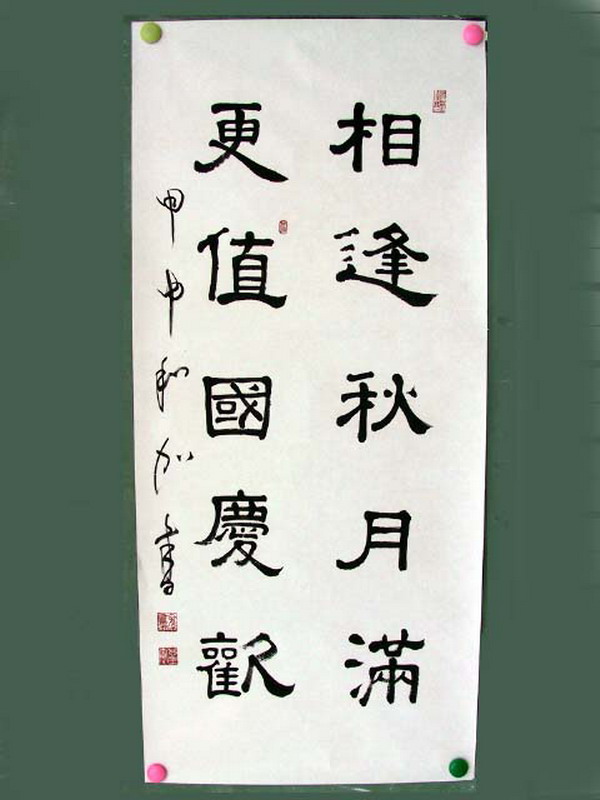 相逢秋月滿
更值國慶歡
甲申和加書